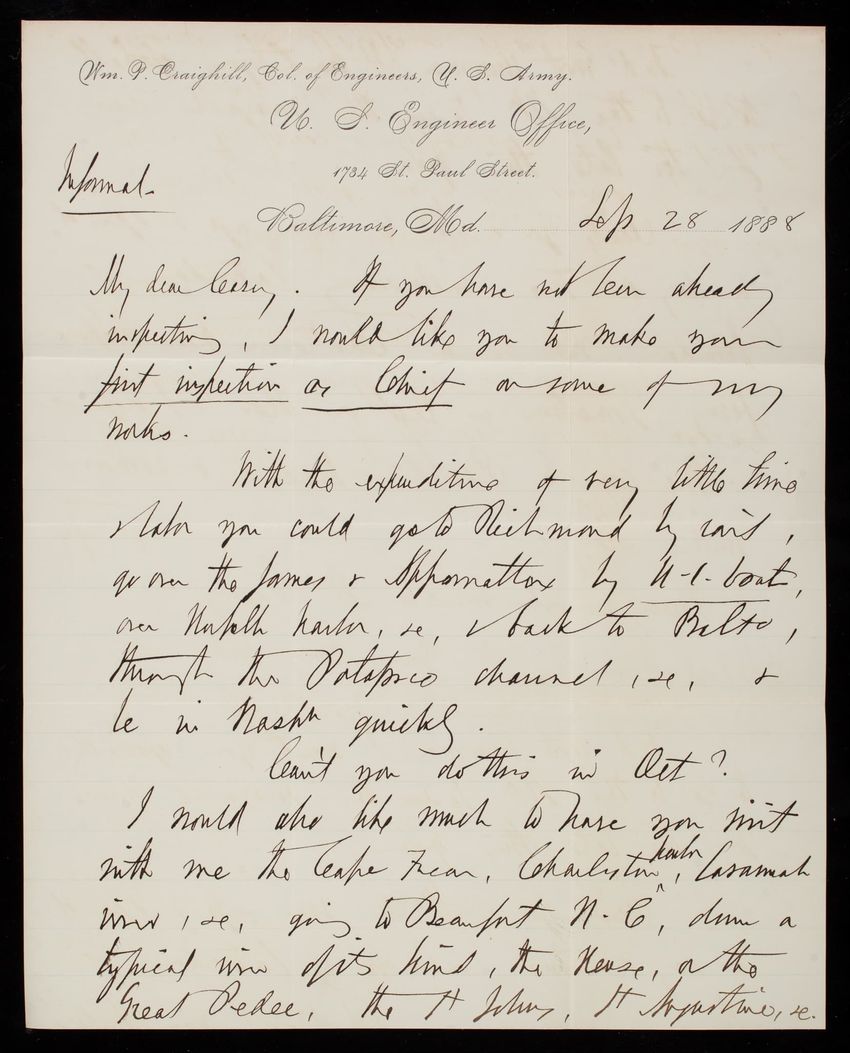 Wm. P. Craighill, Col. of Engineers, U. S. Army.
U. S. Engineer Office,
1734 St. Paul Street.
Informal
Baltimore, Md. Sep 28 1888
My dear Casey. If you have not been already
inspecting, I would like you to make your
first inspection as Chief on some of my
works.
With the expenditure of very little time
& labor you could go to Richmond by rail,
go over the James & Appomattox by U-S-boat,
over Norfolk harbor, &c, & back to Balto,
through the Patapsco channel, &c, &
be in Washn quickly.
Can't you do this in Oct?
I would also like much to have you visit
with me the Cape Fear, Charleston harbor, Savannah
river, &c, going to Beaufort N-C, down a
typical river of its kind, the Neuse, or the
Great Pedee, the St Johns, St Augustine, &c.